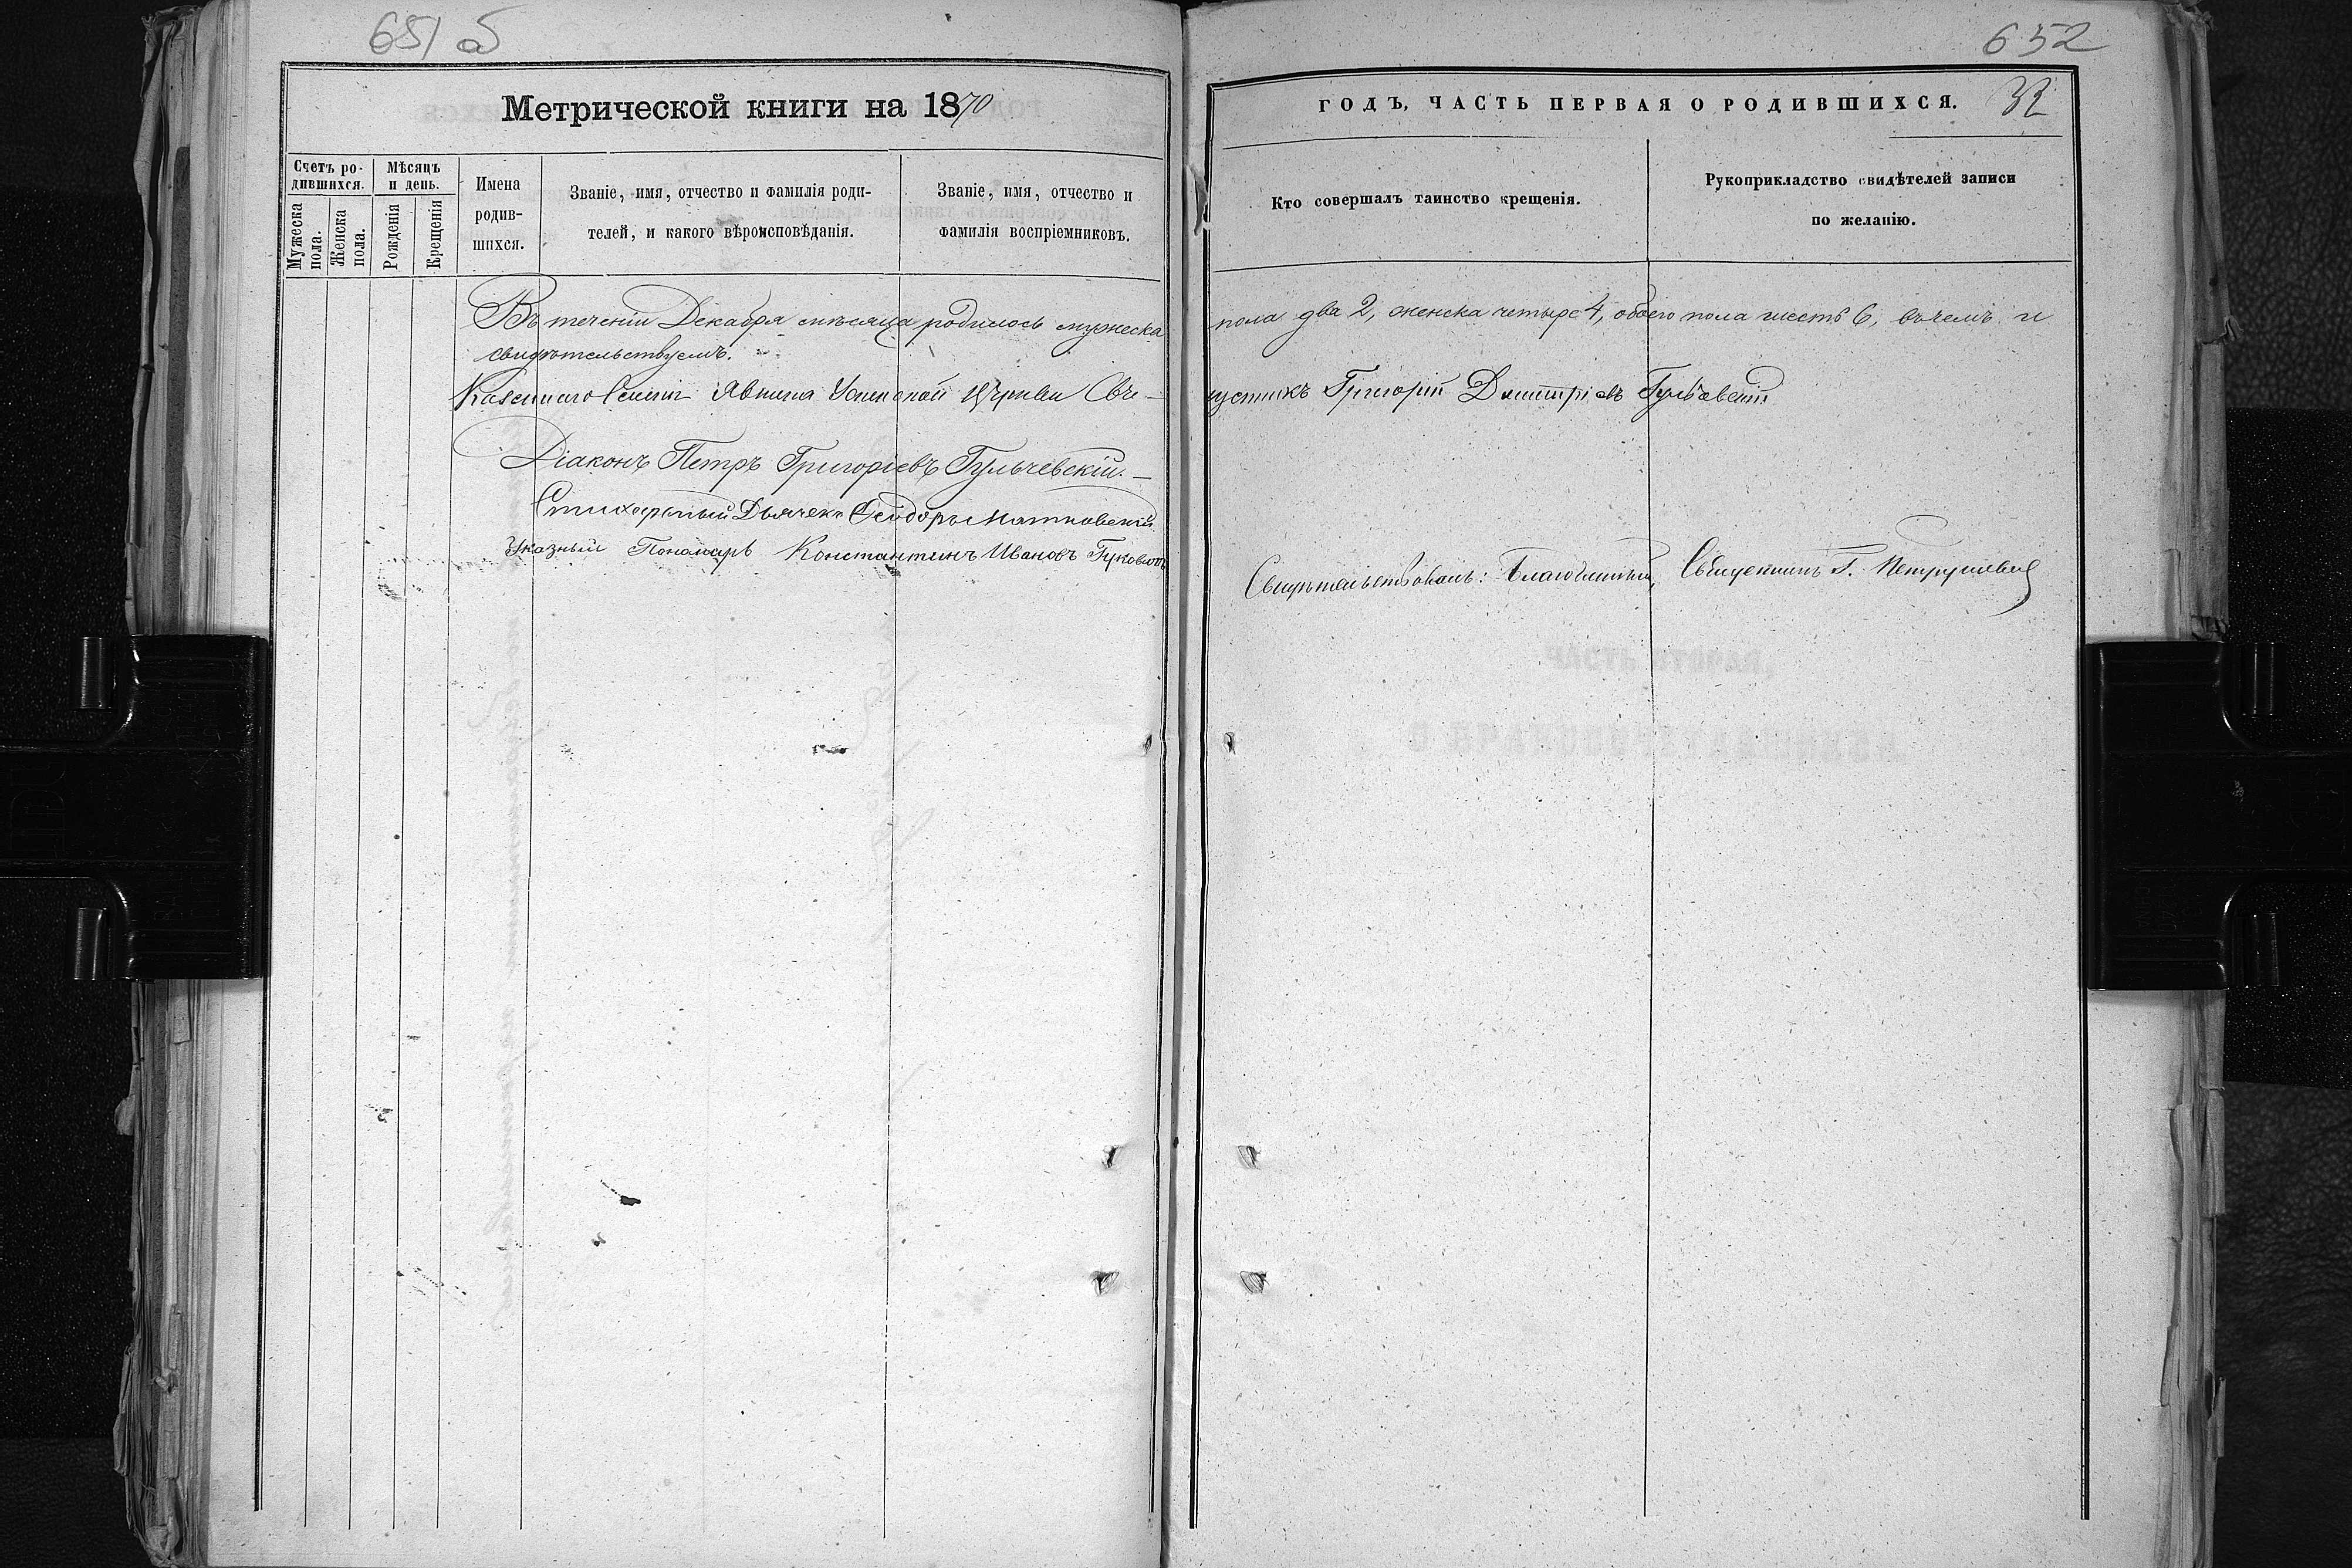 651 об
Метрической книги на 1870
Счетъ ро-
дившихся.
Мѣсяцъ
и день.
Мужеска
пола.
Женска
пола.
Рожденія
Крещенія
Имена
родив-
шихся.
Званіе, имя, отчество и фамилія роди-
телей, и какого вѣроисповѣданія.
Званіе, имя, отчество и
фамилія воспріемниковъ.
Въ теченіи Декабря мѣсяца родилось мужеска
свидѣтельствуемъ.
Казеннаго Селенія Церкви Свя-
Діаконъ Петръ Григоріевъ Гульчевскій.
Стихарный Дьячекъ Ѳеодоръ Матковскій
Указный Пономарь Константинъ Ивановъ
652
ГОДЪ, ЧАСТЬ ПЕРВАЯ О РОДИВШИХСЯ. 32
Кто совершалъ таинство крещенія.
Рукоприкладство свидѣтелей записи
по желанію.
пола два 2, женска четыре 4, обоего пола шесть 6, въ чемъ и
щенникъ Григорій Димитріевъ
Свидѣтельствовалъ: Благочинный, Священникъ Г.
ЧАСТЬ ВТОРАЯ,
О БРАКОСОЧЕТАВШИХСЯ